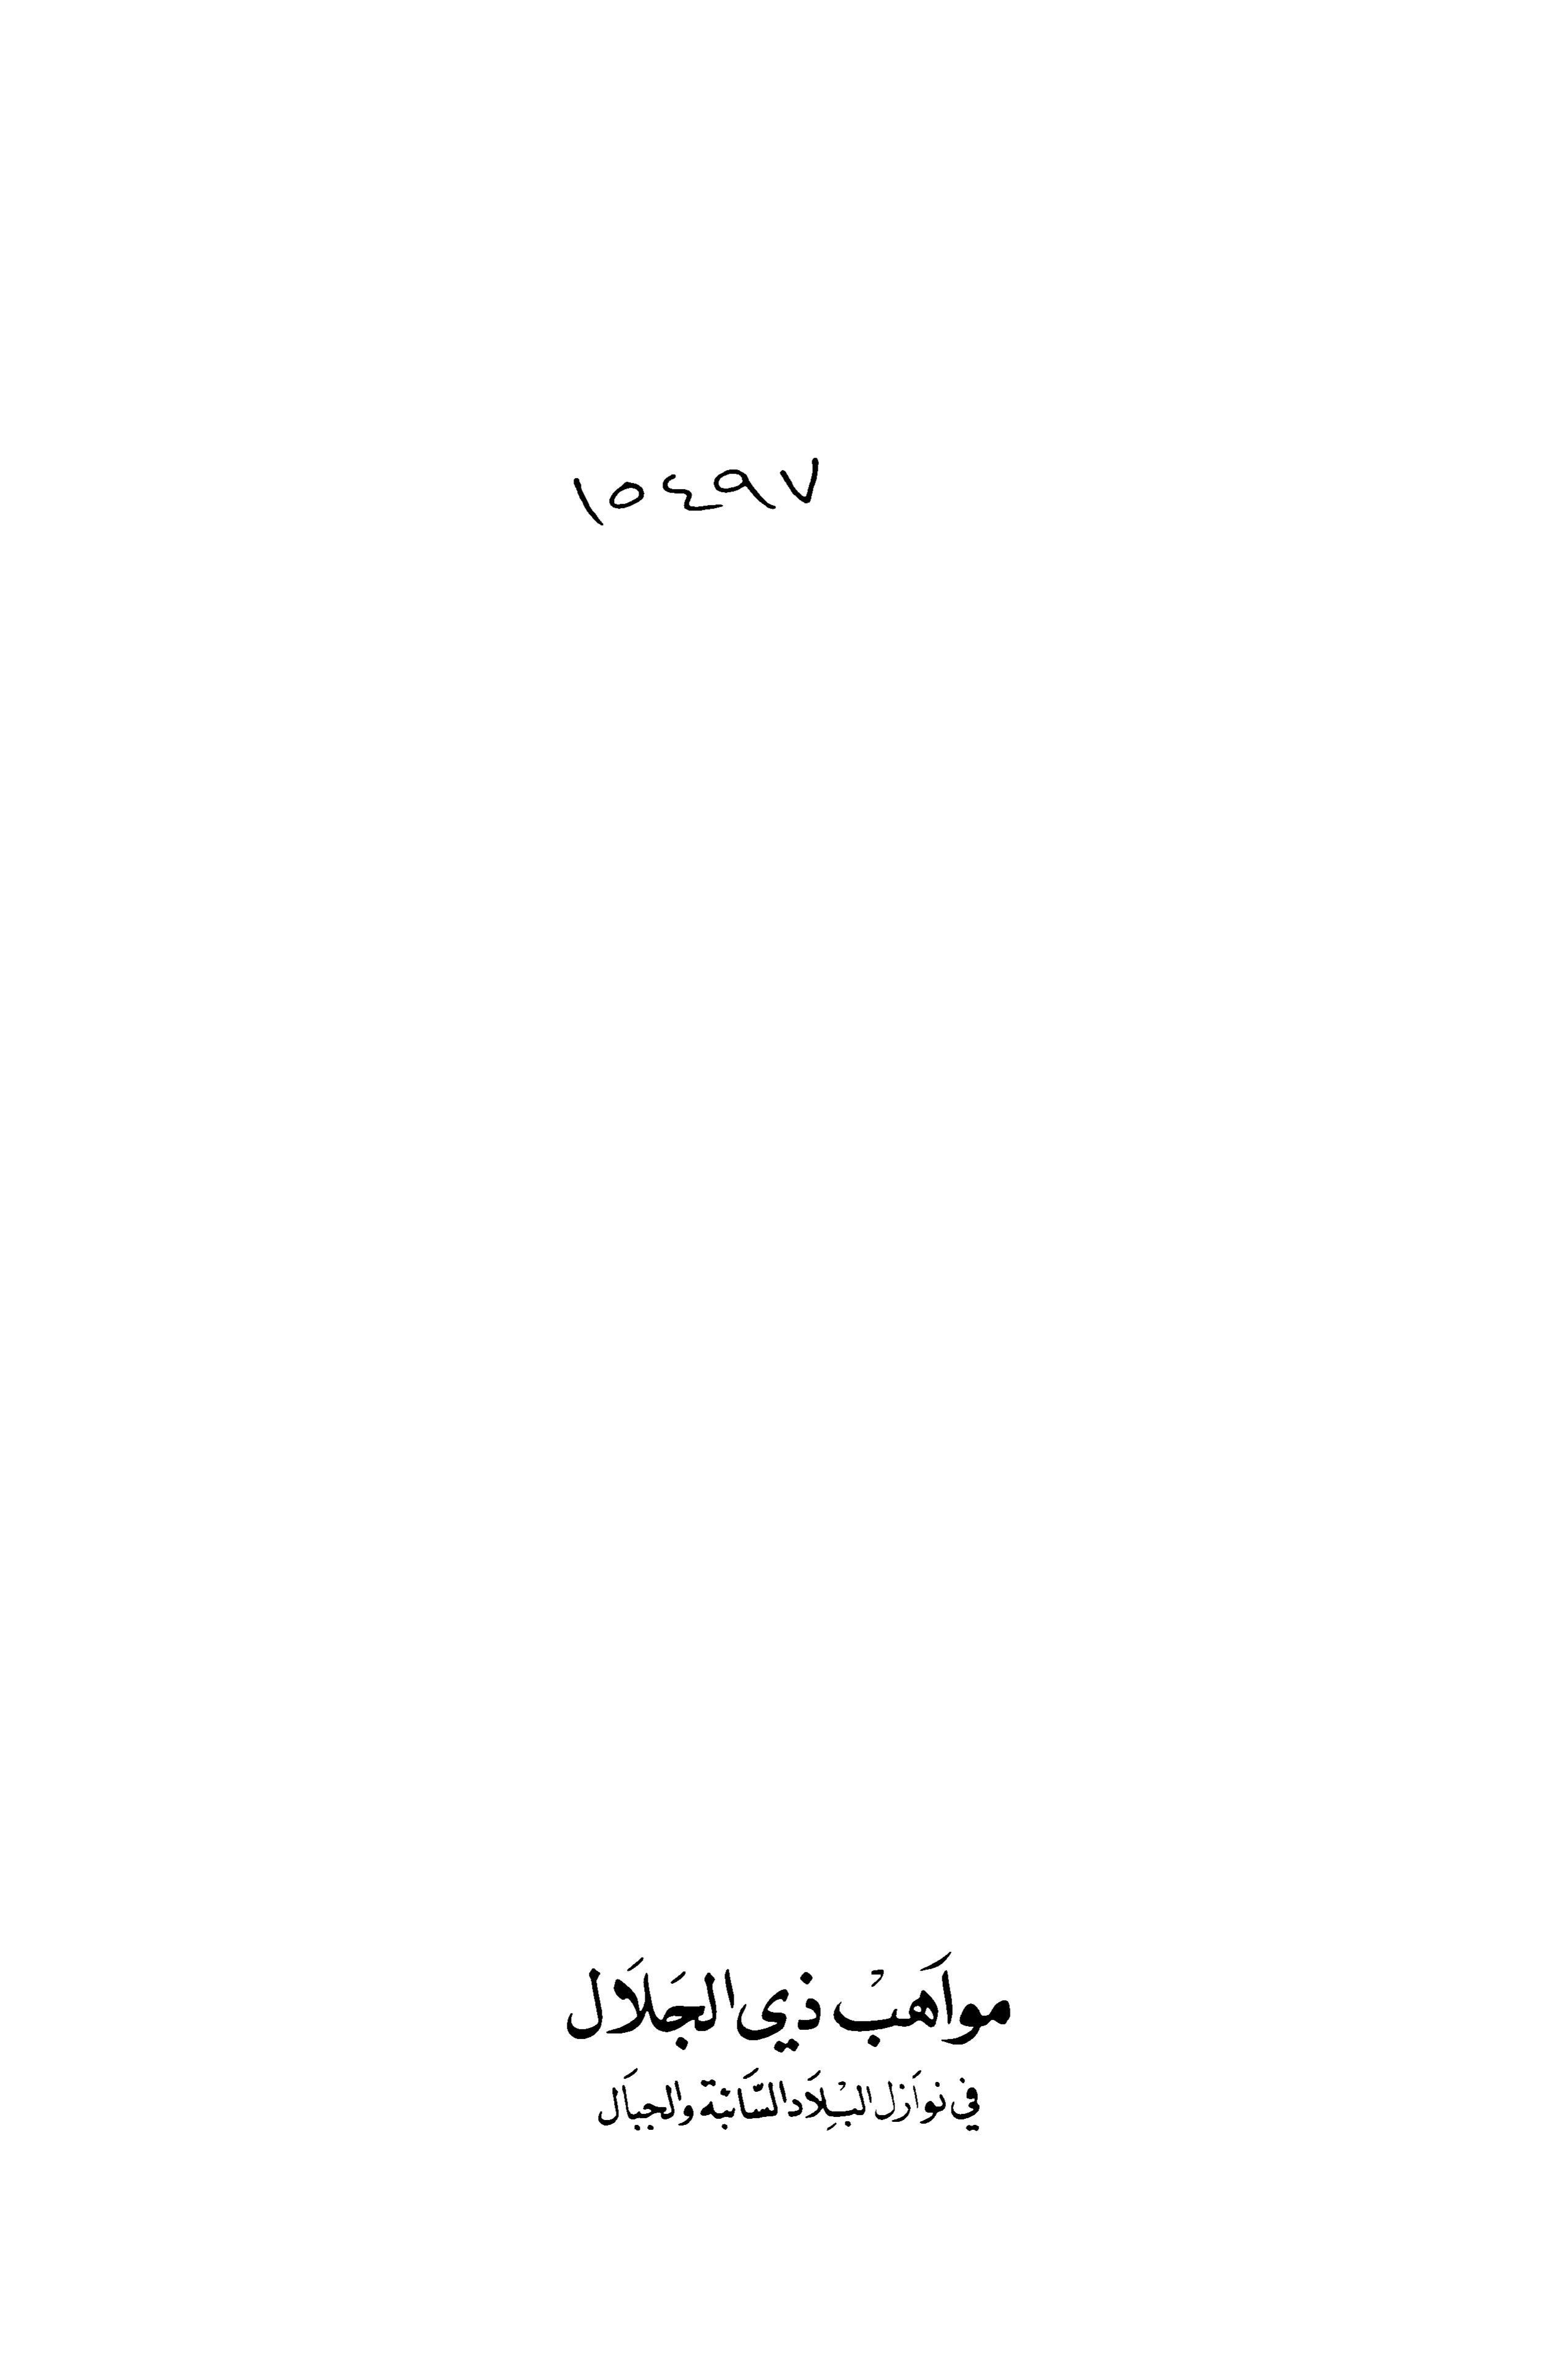 ١٥٤٩٧
مواَهَبُ ذِي الجَلاَل
في نوَازل البُلِاَد السَّائبَة وَالجِبَال